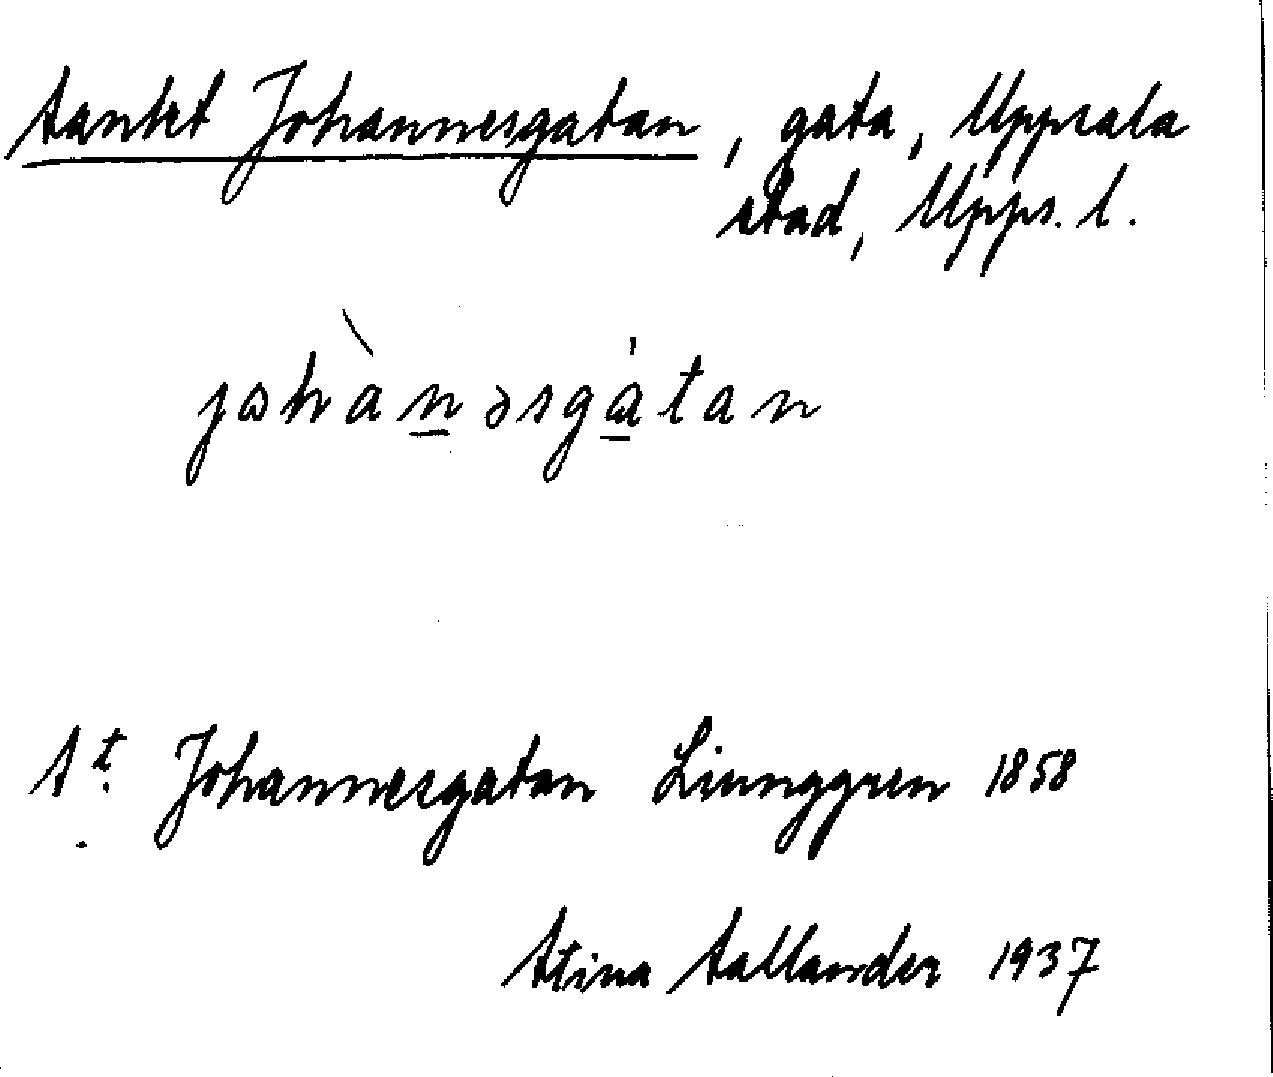 Sankt Johannesgatan, gata, Uppsala
stad, Upps. l.
johànəsgàtan
St. Johannesgatan Liunggren 1858
Stina Sallander 1937